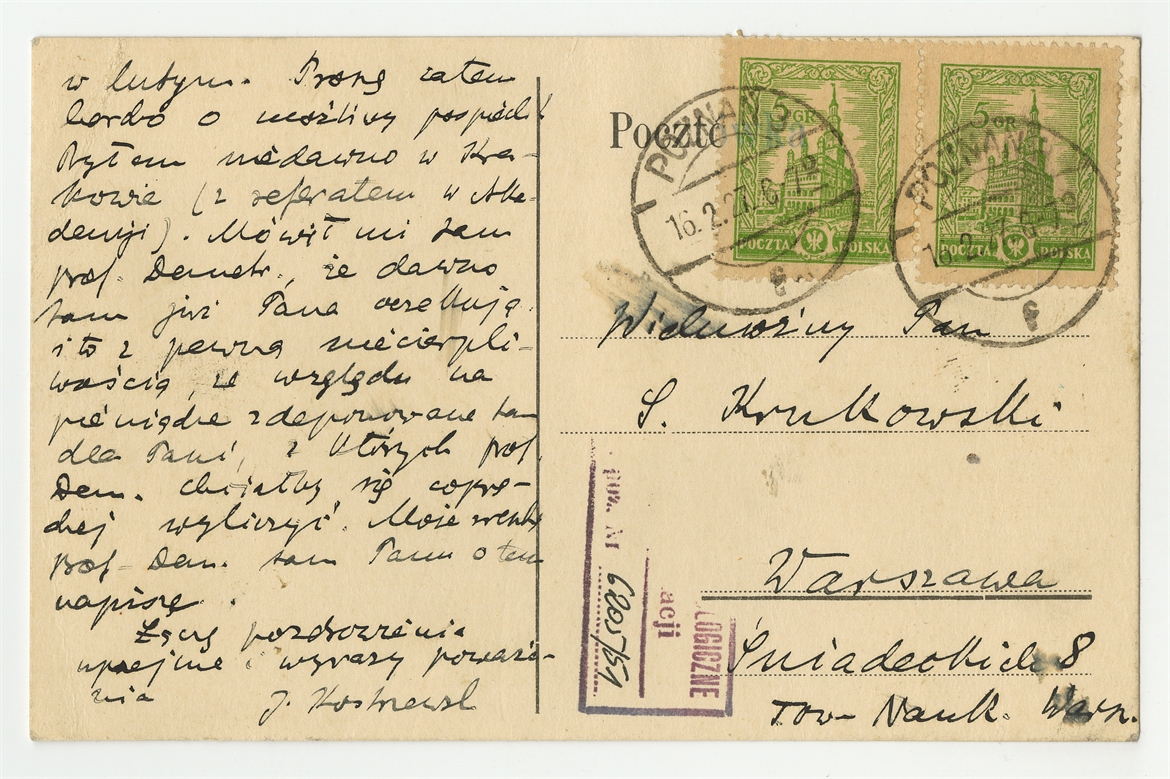 w lutym. Proszę zatem
bardzo o możliwy pospiech!
Byłem niedawno w Kra-
kowie (z referatem w Aka-
demji). Mówił mi tam
prof. Demetr., że dawno
tam już Pana oczekują
i to z pewną niecierpli-
wością, ze względu na
pieniądze zdeponowane tam
dla Pani, z których prof.
Dem. chciałby się coprę-
dzej wyliczyć. Może zresztą
prof. Dem. sam Panu o tem
napisze.
Łączę pozdrowienia
uprzejme i wyrazy poważa-
nia
J. Kostrzewski
Poczto
5 GR
POCZTA POLSKA
5 GR
POCZTA POLSKA
POZNAŃ 3
16.2.27.6-7
POZNAŃ 3
16.2.27.6-7
Wielmożny Pan
S. Krukowski
Warszawa
Śniadeckich 8
Tow. Nauk. Warsz.
LOGICZNE
acji
poz. Nr 6205/51